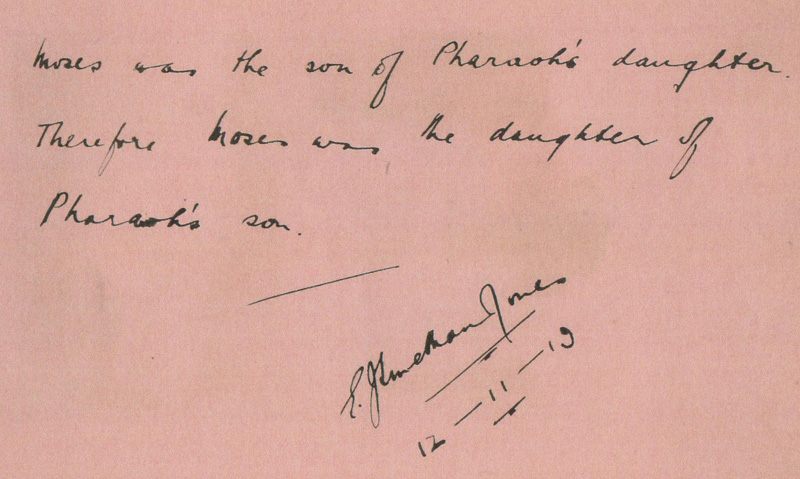 Moses was the son of Pharaoh's daughter.
Therefore Moses was the daughter of
Pharaoh's son.
E. Jonathan Jones
12-11-19